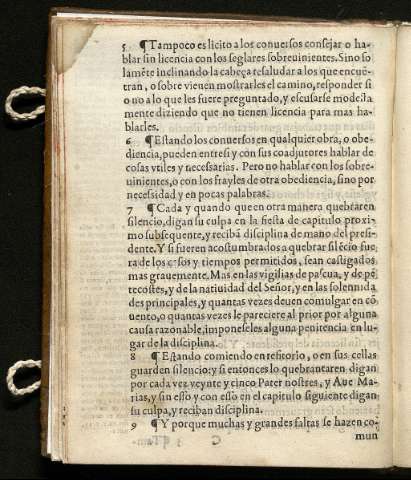 5 ¶Tampoco es licito a los conuersos consejar o ha-
blar sin licencia con los seglares sobreuinientes. Sino so
lamẽte inclinando la cabeça resaludar a los que encuẽ-
tran, o sobre vienen mostrarles el camino, responder si
o no a lo que les fuere preguntado, y escusarse modesta
mente diziendo que no tienen licencia para mas ha-
blarles.
6 ¶Estando los conuersos en qualquier obra, o obe-
diencia, pueden entre si y con sus coadjutores hablar de
cosas vtiles y necessarias. Pero no hablar con los sobre-
uinientes, o con los frayles de otra obediencia, sino por
necessidad y en pocas palabras.
7 ¶Cada y quando que en otra manera quebraren
silencio, digan su culpa en la fiesta de capitulo proxi-
mo subsequente, y recibã disciplina de mano del presi-
dente. Y si fueren acostumbrados a quebrar silẽcio fue
ra de los casos y tiempos permitidos, sean castigados
mas grauemente. Mas en las vigilias de pascua, y de pẽ
tecostes, y de la natiuidad del Señor, y en las solennida
des principales, y quantas vezes deuen comulgar en cõ
uento, o quantas vezes le pareciere al prior por alguna
causa razonable, imponeseles alguna penitencia en lu-
gar de la disciplina.
8 ¶Estando comiendo en refitorio, o en sus cellas
guarden silencio: y si entonces lo quebrantaren digan
por cada vez veynte y cinco Pater nostres, y Aue Ma-
rias, y sin esso y con esso en el capitulo siguiente digan
su culpa, y reciban disciplina.
9 ¶Y porque muchas y grandes faltas se hazen co-
C mun